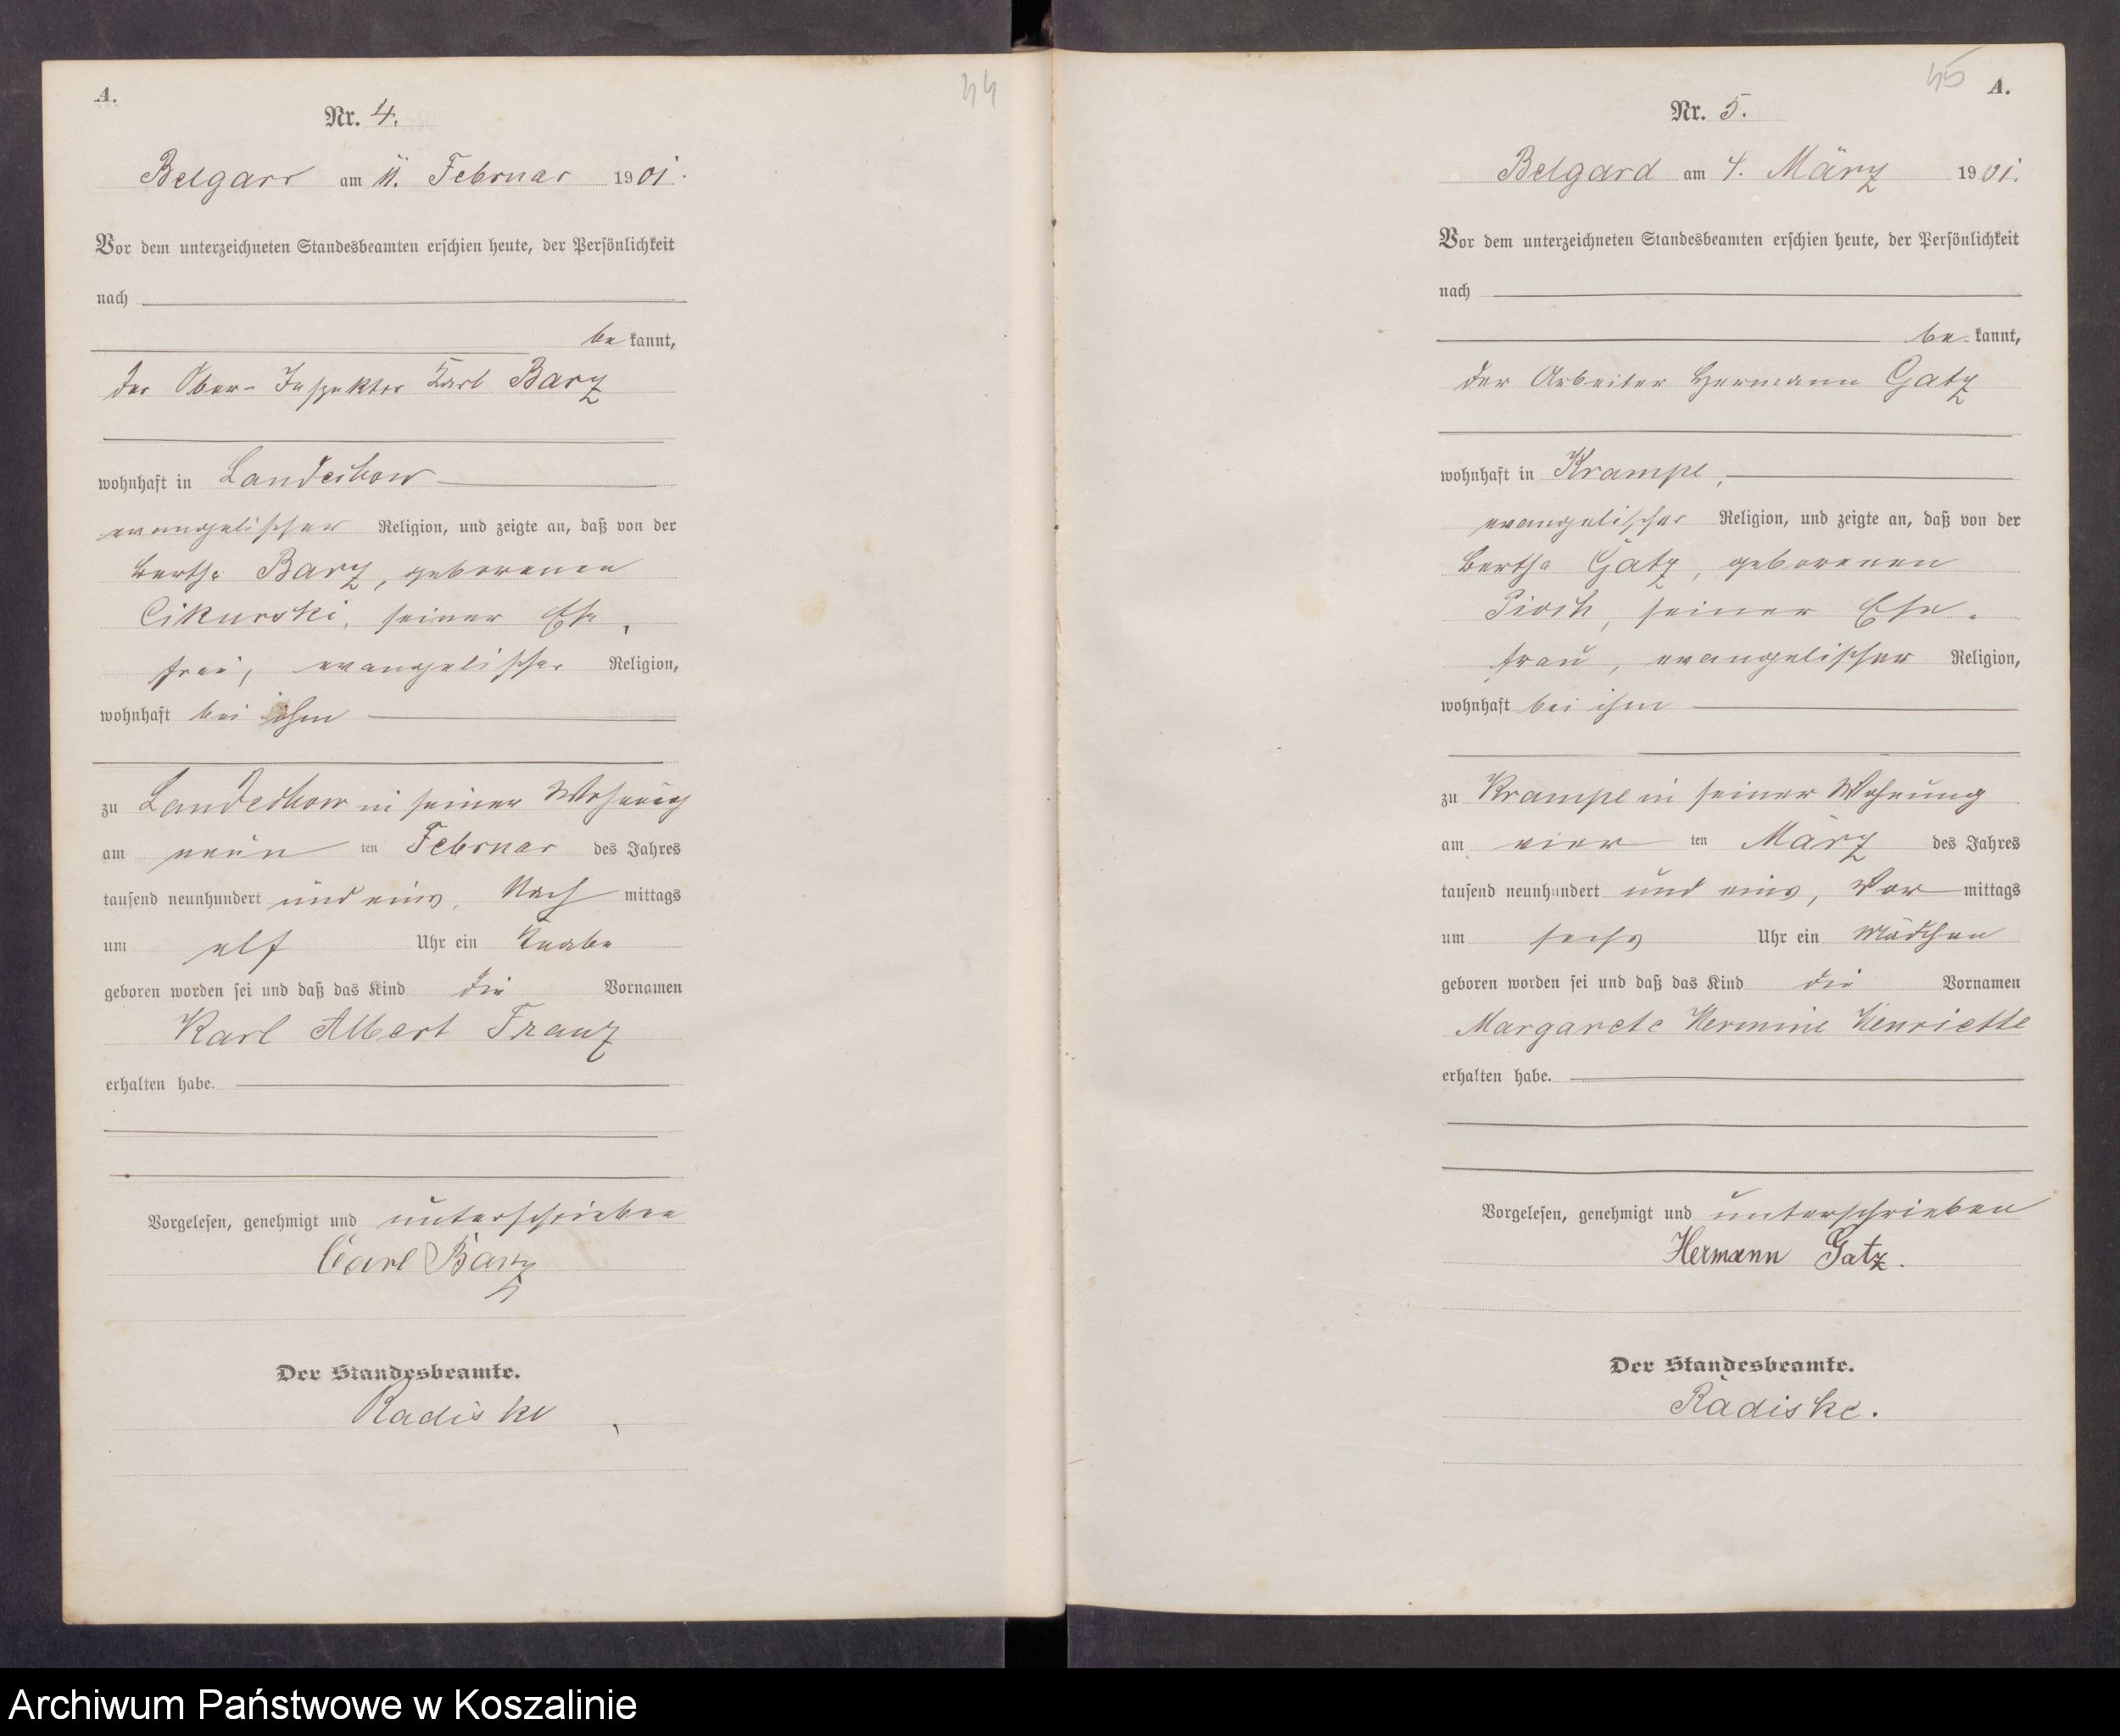 A.
44
Nr. 4.
Belgard am 11. Februar 1901.
Vor dem unterzeichneten Standesbeamten erschien heute, der Persönlichkeit
nach
be kannt,
der Ober-Inspektor Karl Barz
wohnhaft in Landechow
evangelischer Religion, und zeigte an, daß von der
Bertha Barz, geborenen
Cikurski, seiner Ehe-
frau, evangelischer Religion,
wohnhaft bei ihm
zu Landechow in seiner Wohnung
am neun ten Februar des Jahres
tausend neunhundert und eins, Nach mittags
um elf Uhr ein Knabe
geboren worden sei und daß das Kind die Vornamen
Karl Albert Franz
erhalten habe.
Vorgelesen, genehmigt und unterschrieben
Carl Barz
Der Standesbeamte.
Radiske
45
A.
Nr. 5.
Belgard am 4. März 1901.
Vor dem unterzeichneten Standesbeamten erschien heute, der Persönlichkeit
nach
be kannt,
der Arbeiter Hermann Gatz
wohnhaft in Krampe,
evangelischer Religion, und zeigte an, daß von der
Bertha Gatz, geborenen
Pioch, seiner Ehe-
frau, evangelischer Religion,
wohnhaft bei ihm
zu Krampe in seiner Wohnung
am vier ten März des Jahres
tausend neunhundert und eins, Vor mittags
um sechs Uhr ein Mädchen
geboren worden sei und daß das Kind die Vornamen
Margarete Hermine Henriette
erhalten habe.
Vorgelesen, genehmigt und unterschrieben
Hermann Gatz.
Der Standesbeamte.
Radiske.
Archiwum Państwowe w Koszalinie